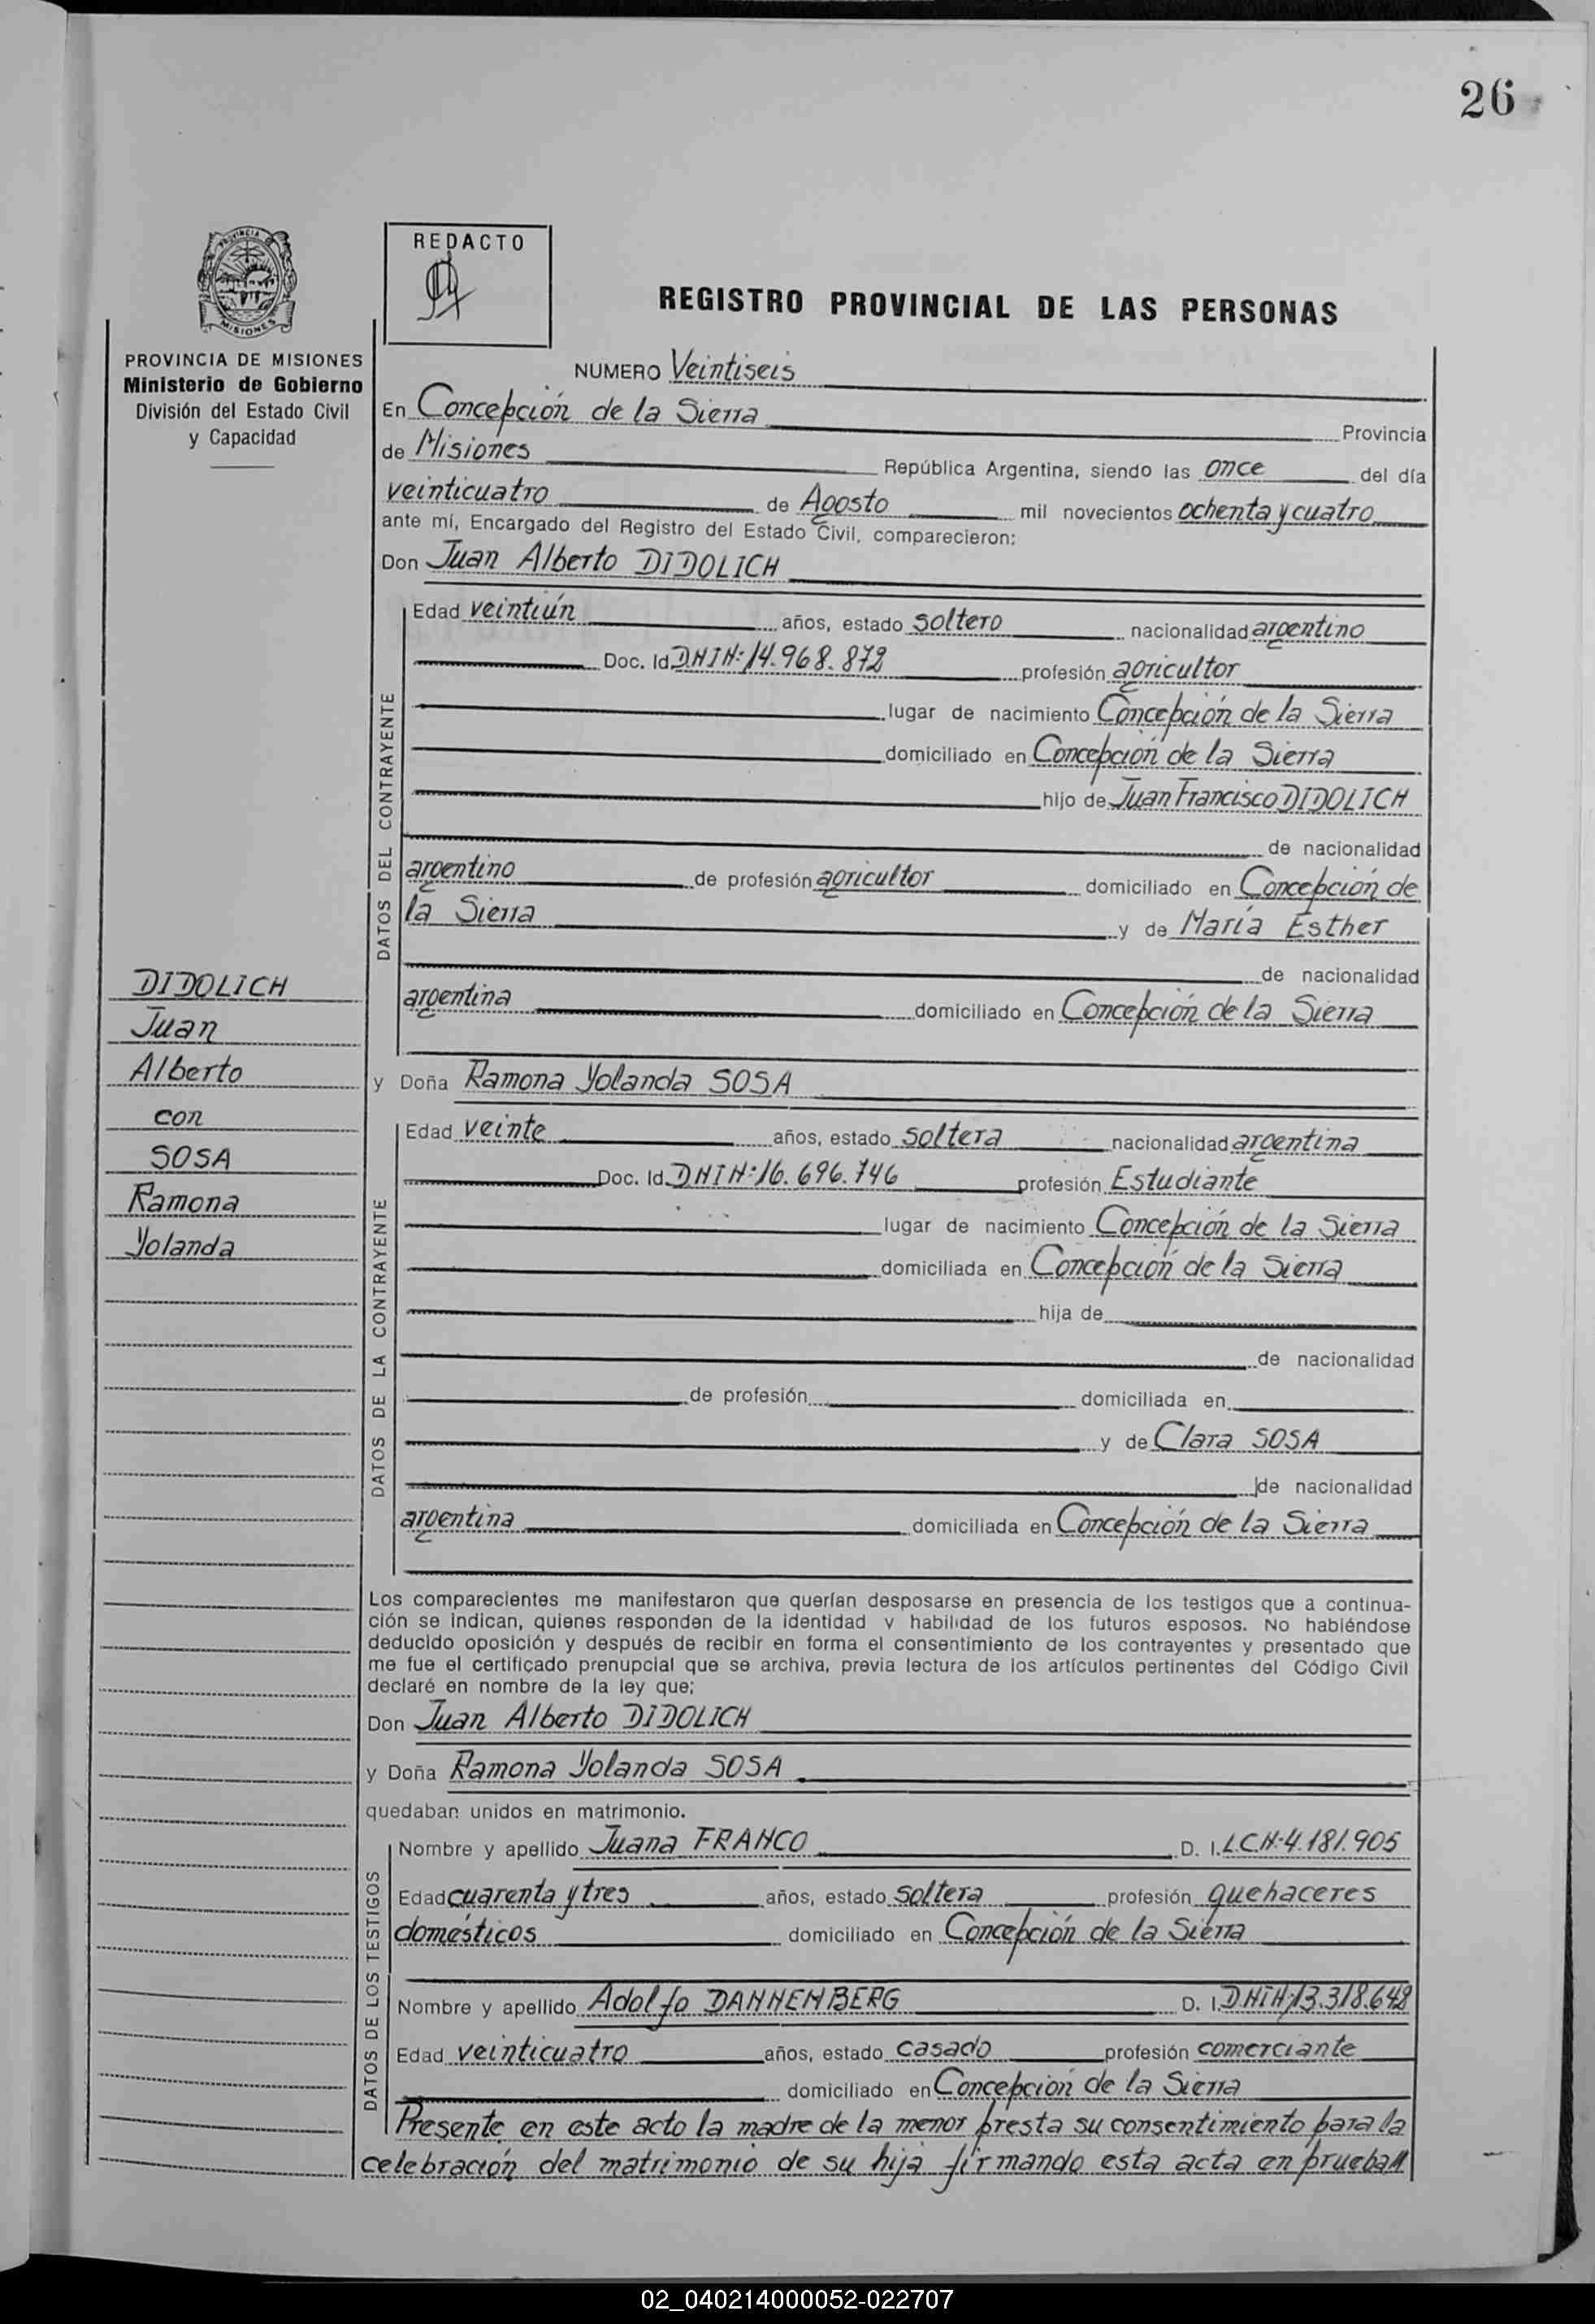 26
REDACTO
REGISTRO PROVINCIAL DE LAS PERSONAS
PROVINCIA DE MISIONES
Ministerio de Gobierno
División del Estado Civil
y Capacidad
NUMERO Veintiseis
En Concepción de la Sierra Provincia
de Misiones República Argentina, siendo las once del día
veinticuatro de Agosto mil novecientos ochenta y cuatro
ante mí, Encargado del Registro del Estado Civil, comparecieron:
Don Juan Alberto DIDOLICH
DATOS DEL CONTRAYENTE
Edad veintiún años, estado soltero nacionalidad argentino
Doc. Id. DNIN: 14.968.872 profesión agricultor
lugar de nacimiento Concepción de la Sierra
domiciliado en Concepción de la Sierra
hijo de Juan Francisco DIDOLICH
de nacionalidad
argentino de profesión agricultor domiciliado en Concepción de
la Sierra y de María Esther
de nacionalidad
argentina domiciliado en Concepción de la Sierra
DIDOLICH
Juan
Alberto
con
SOSA
Ramona
Yolanda
y Doña Ramona Yolanda SOSA
DATOS DE LA CONTRAYENTE
Edad veinte años, estado soltera nacionalidad argentina
Doc. Id. DNIN: 16.696.746 profesión Estudiante
lugar de nacimiento Concepción de la Sierra
domiciliada en Concepción de la Sierra
hija de
de nacionalidad
de profesión domiciliada en
y de Clara SOSA
de nacionalidad
argentina domiciliada en Concepción de la Sierra
Los comparecientes me manifestaron que querían desposarse en presencia de los testigos que a continua-
ción se indican, quienes responden de la identidad y habilidad de los futuros esposos. No habiéndose
deducido oposición y después de recibir en forma el consentimiento de los contrayentes y presentado que
me fue el certificado prenupcial que se archiva, previa lectura de los artículos pertinentes del Código Civil
declaré en nombre de la ley que:
Don Juan Alberto DIDOLICH
y Doña Ramona Yolanda SOSA
quedaban unidos en matrimonio.
DATOS DE LOS TESTIGOS
Nombre y apellido Juana FRANCO D. I. L.C.N: 4.181.905
Edad cuarenta y tres años, estado soltera profesión quehaceres
domésticos domiciliado en Concepción de la Sierra
Nombre y apellido Adolfo DANNENBERG D. I. DNIN: 13.318.642
Edad veinticuatro años, estado casado profesión comerciante
domiciliado en Concepción de la Sierra
Presente en este acto la madre de la menor presta su consentimiento para la
celebración del matrimonio de su hija firmando esta acta en prueba//
02_040214000052-022707